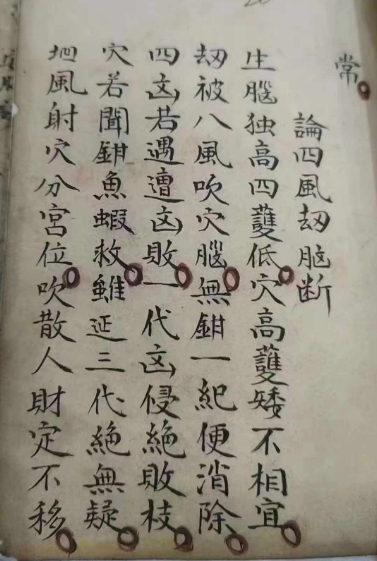 常
論四風刼脳断
生腦独高四䕶低穴高䕶矮不相宜
刼被八風吹穴腦無鉗一紀便消除
四凶若遇遭凶敗一代凶侵絶敗枝
穴若聞鉗魚蝦救雖延三代絶無疑
坦風射穴分宮位吹散人財定不移